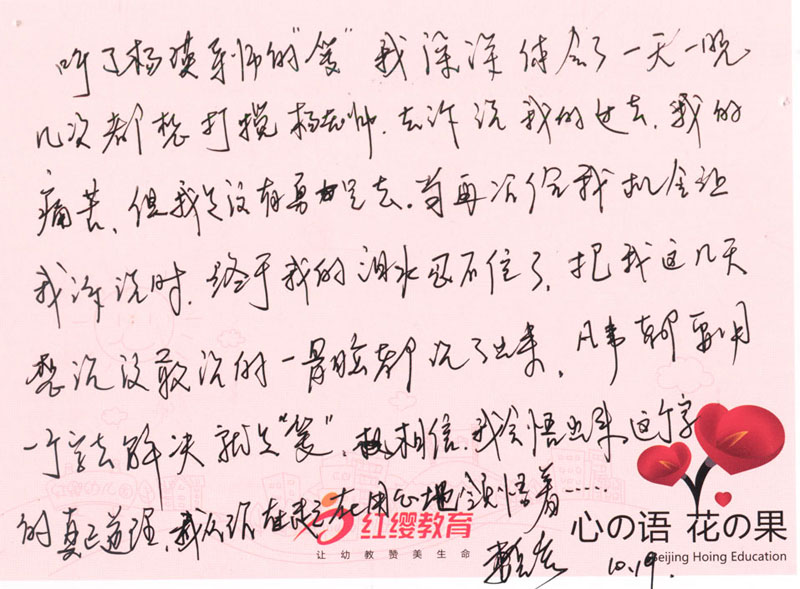 听了杨瑛老师的"爱"我深深体会了一天一晚
几次都想打搅杨老师.去诉说我的过去.我的
痛苦.但我是没有勇气去.当再次给我机会让
我诉说时.终于我的泪水忍不住了.把我这几天
想说没敢说的一骨脑都说了出来.凡事都要用
一个字去解决就是"爱".相信.我会悟出来这个字
的真正道理.我在用心地领悟着……
10.19.
红缨教育
让幼教赞美生命
心の语 花の果
Beijing Hoing Education